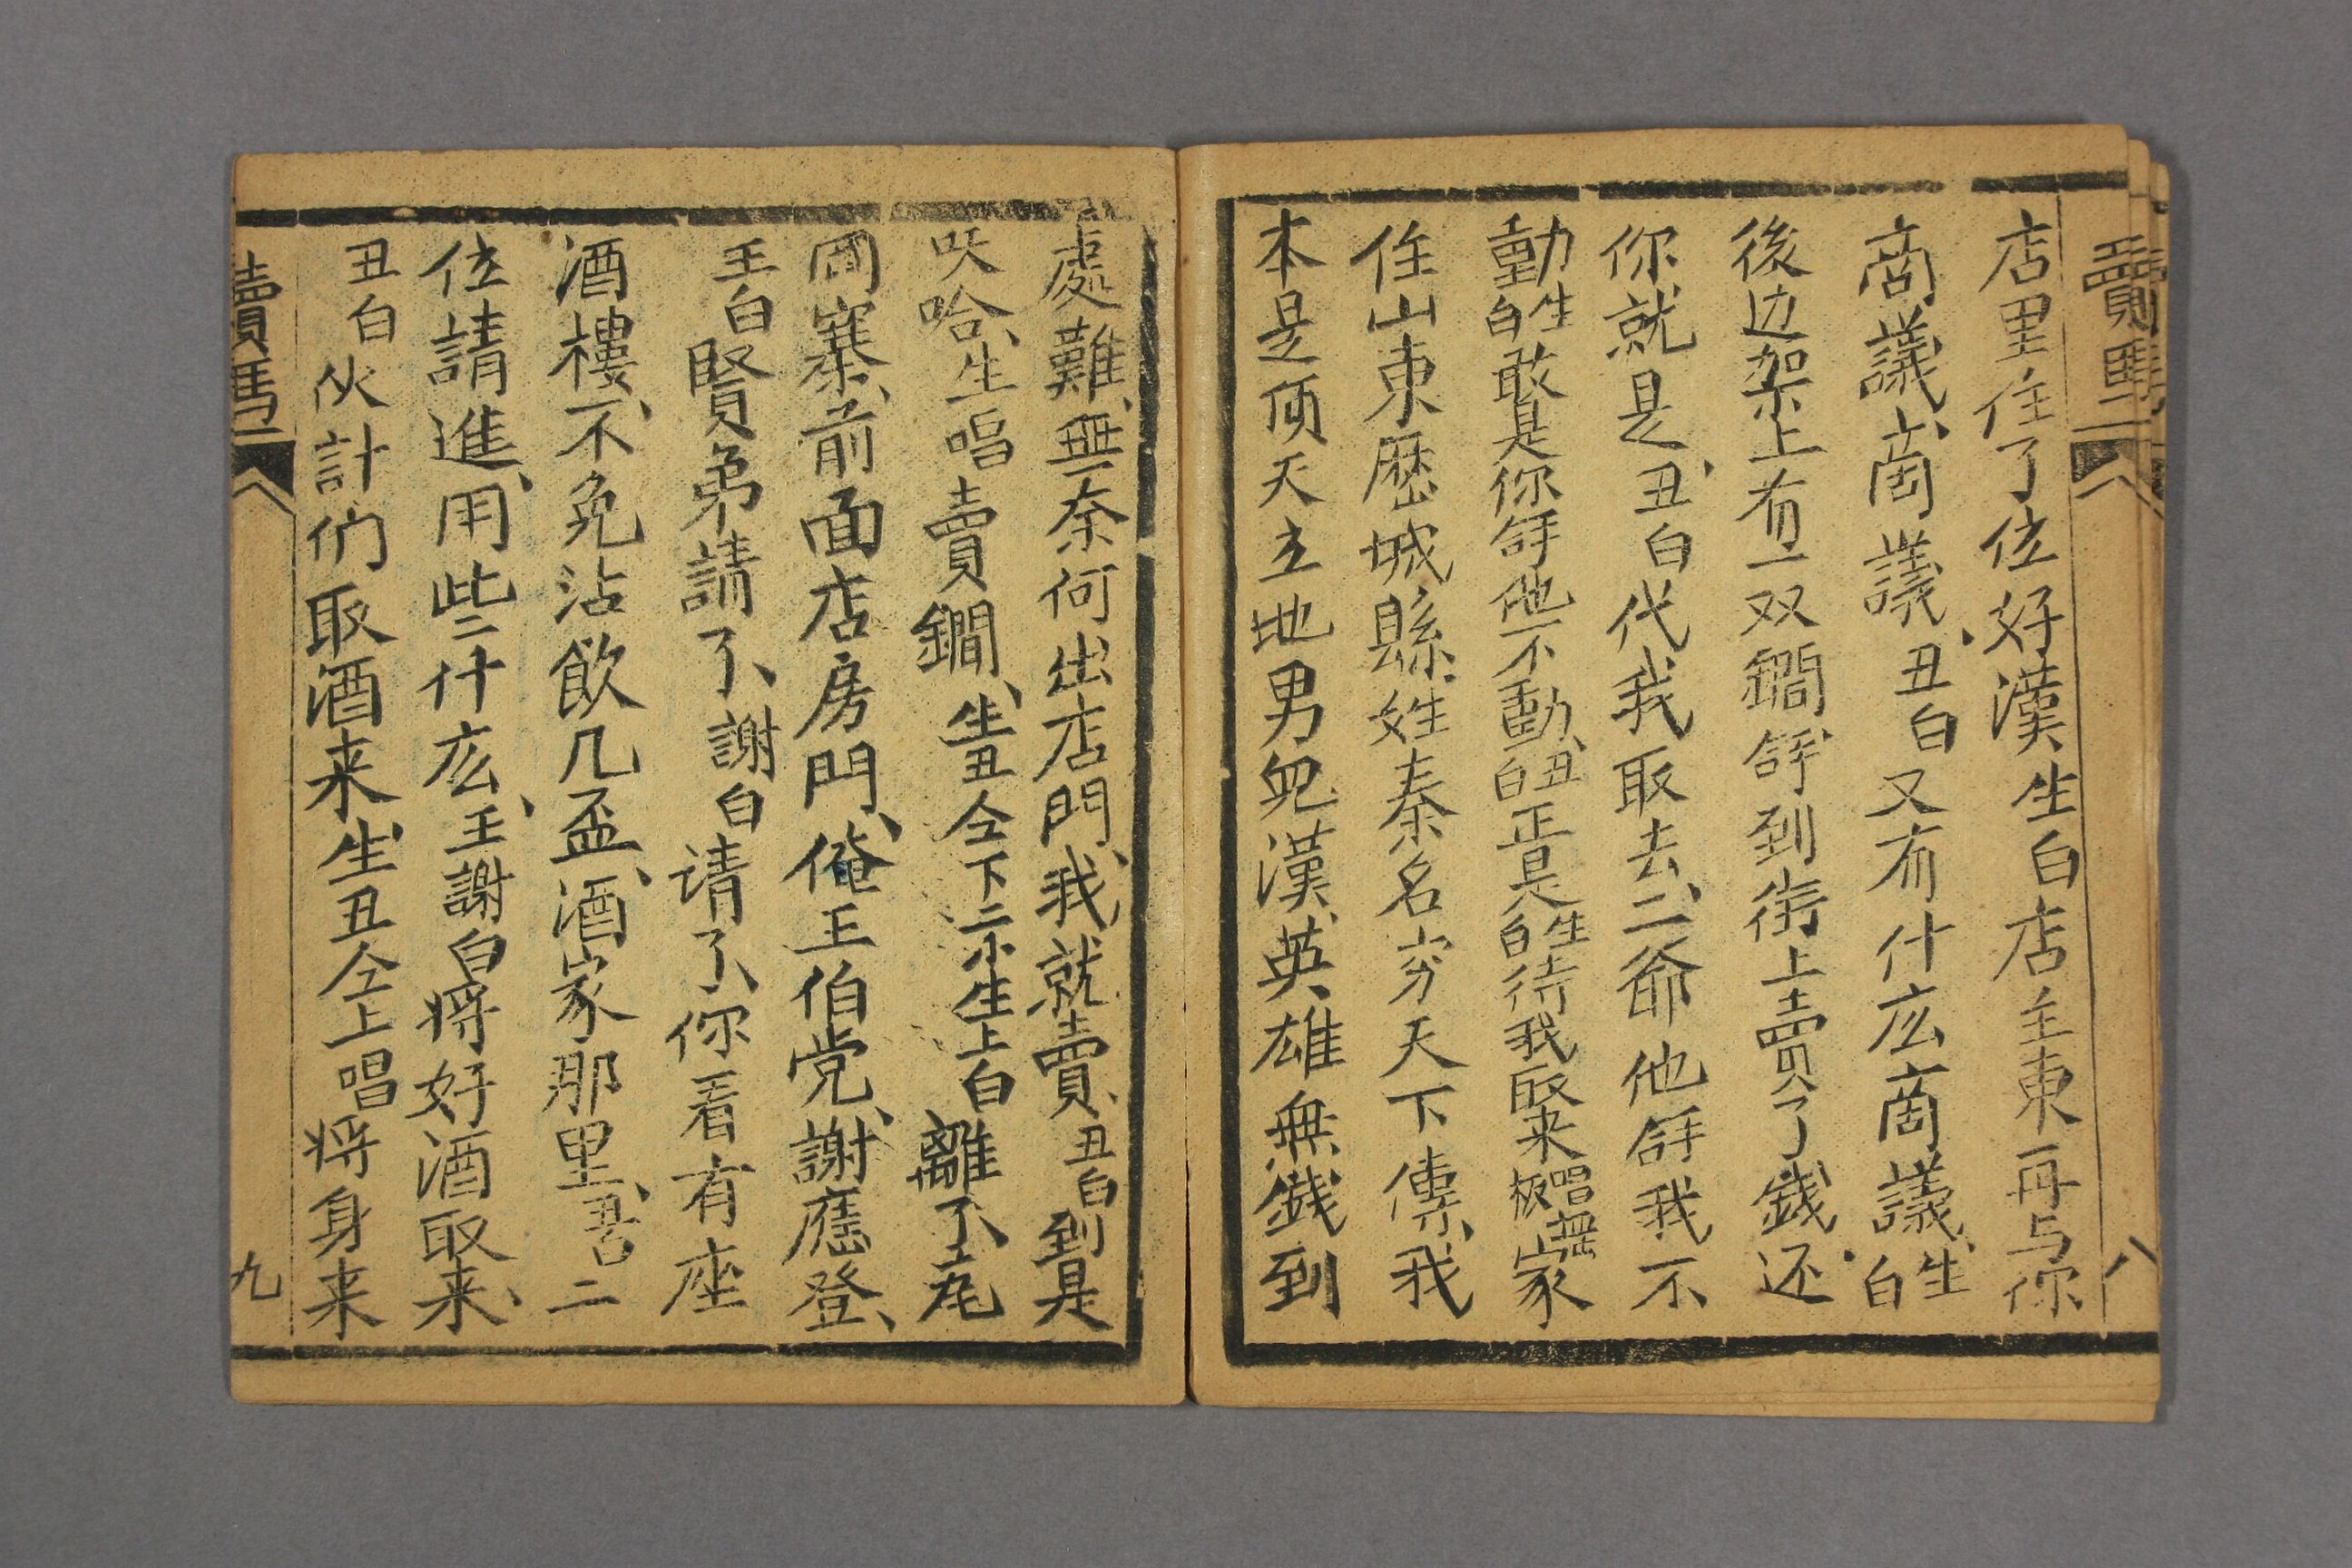 賣馬 八
店里住了位好漢生白店主東再与你
商議、商議、丑白又有什庅商議、生白
後边架上有一双鐧、㧱到街上賣了錢还
你就是、丑白代我取去、二爺他㧱我不
動生白敢是你㧱他不動、丑白正是生白待我取来唱
住山東歷城縣、姓秦名穷天下傳、我
本是頂天立地男兒漢、英雄無錢到
處難、無奈何出店門、我就賣、丑白到是
哈、生唱賣鐧、生丑仝下二小生上白離了瓦
崗寨、前面店房門、俺王伯党、謝應登、
王白賢弟請了、謝白请了、你看有座
酒樓、不免沾飲几盃、酒家那里、丑白二
位請進、用些什庅、王謝白将好酒取来、
丑白伙計們取酒来、生丑仝上唱将身来
賣馬 九